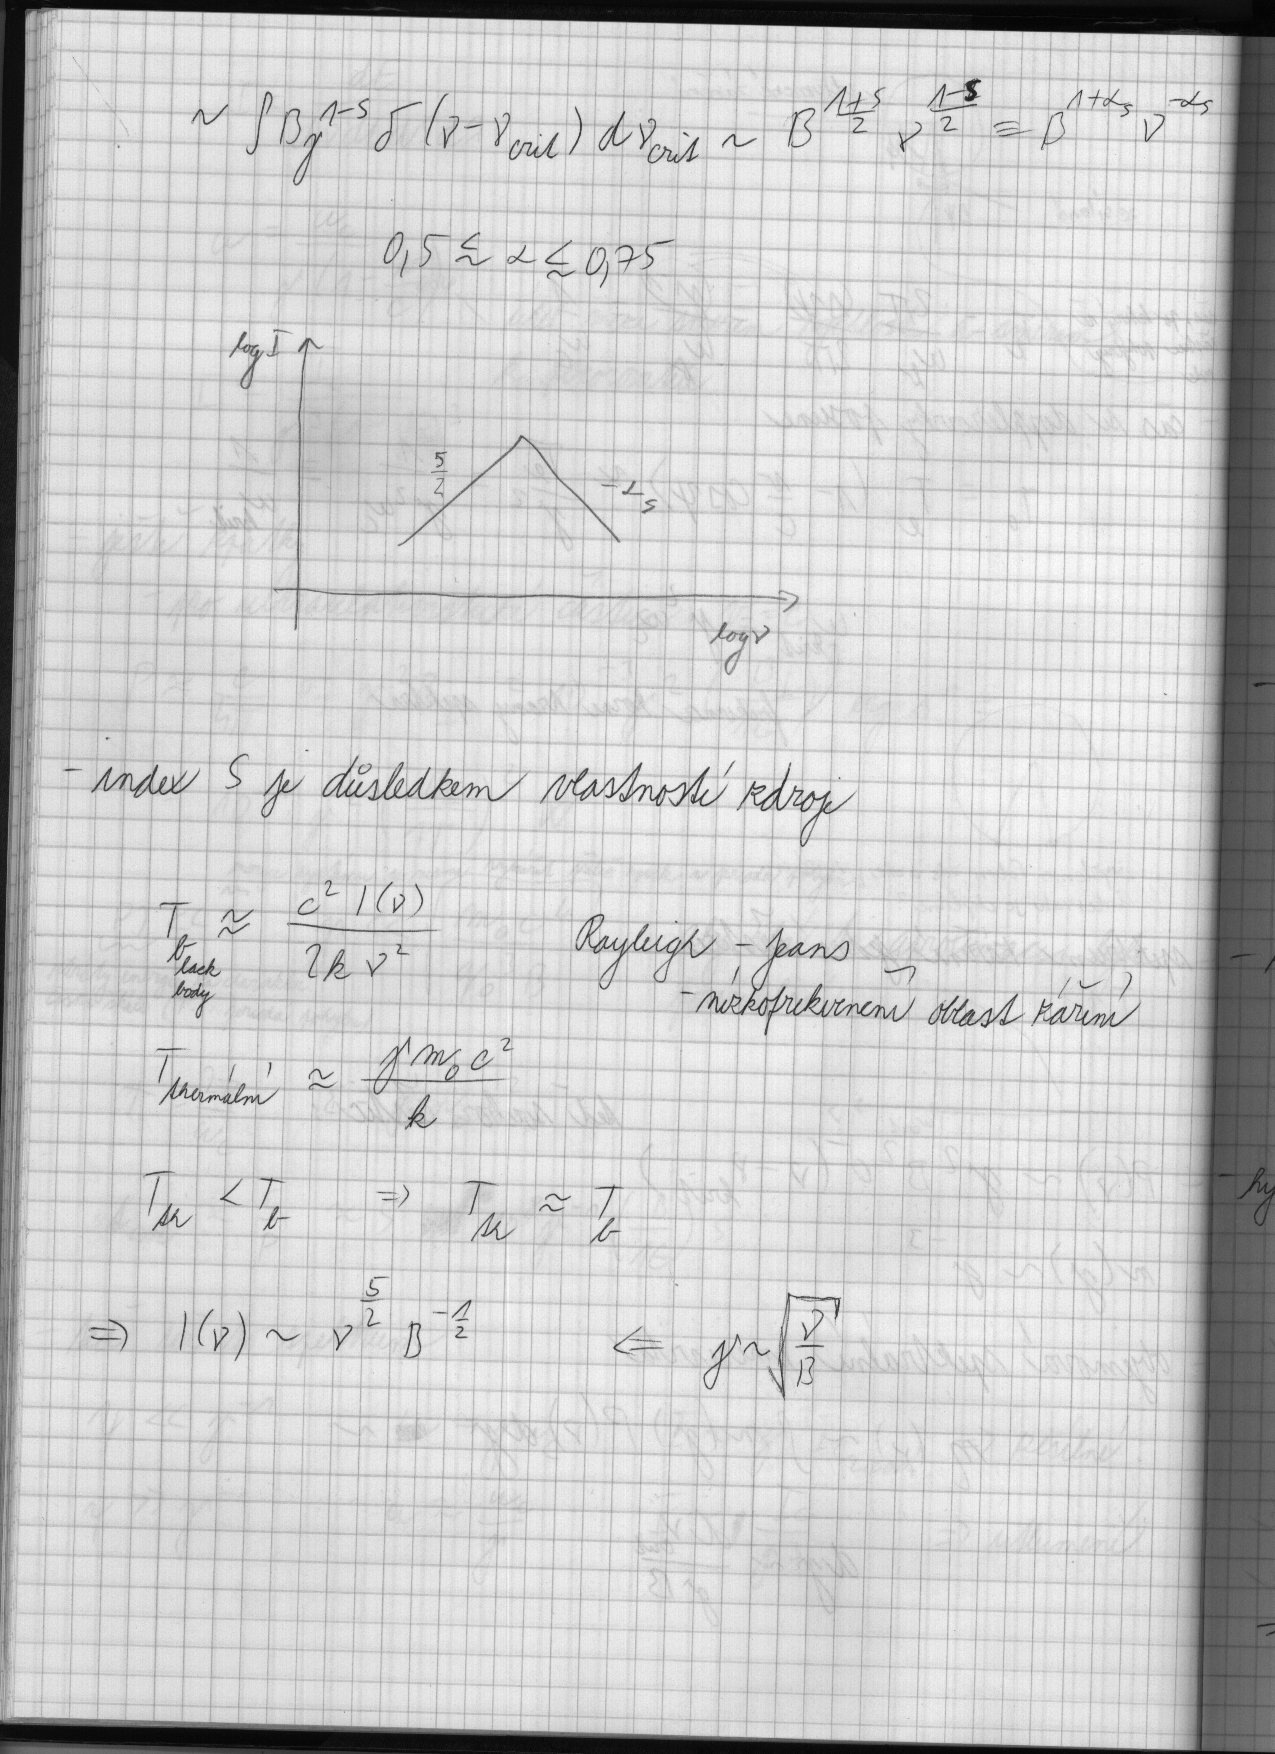 ~ ∫ B γ^{1-s} δ (ν - ν_{crit}) dν_{crit} ~ B^{\frac{1+s}{2}} ν^{\frac{1-s}{2}} = B^{1+α_s} ν^{-α_s}
0,5 ≲ α ≲ 0,75
log I
5/2
-α_s
log ν
- index S je důsledkem vlastností zdroje
T_{black body} ≈ \frac{c² I(ν)}{2k ν²} Rayleigh - Jeans
- nízkofrekvenční oblast záření
T_{thermální} ≈ \frac{γ m_0 c²}{k}
T_{th} < T_b ⇒ T_{th} ≈ T_b
⇒ I(ν) ~ ν^{\frac{5}{2}} B^{-\frac{1}{2}} ⇐ γ ~ \sqrt{\frac{ν}{B}}